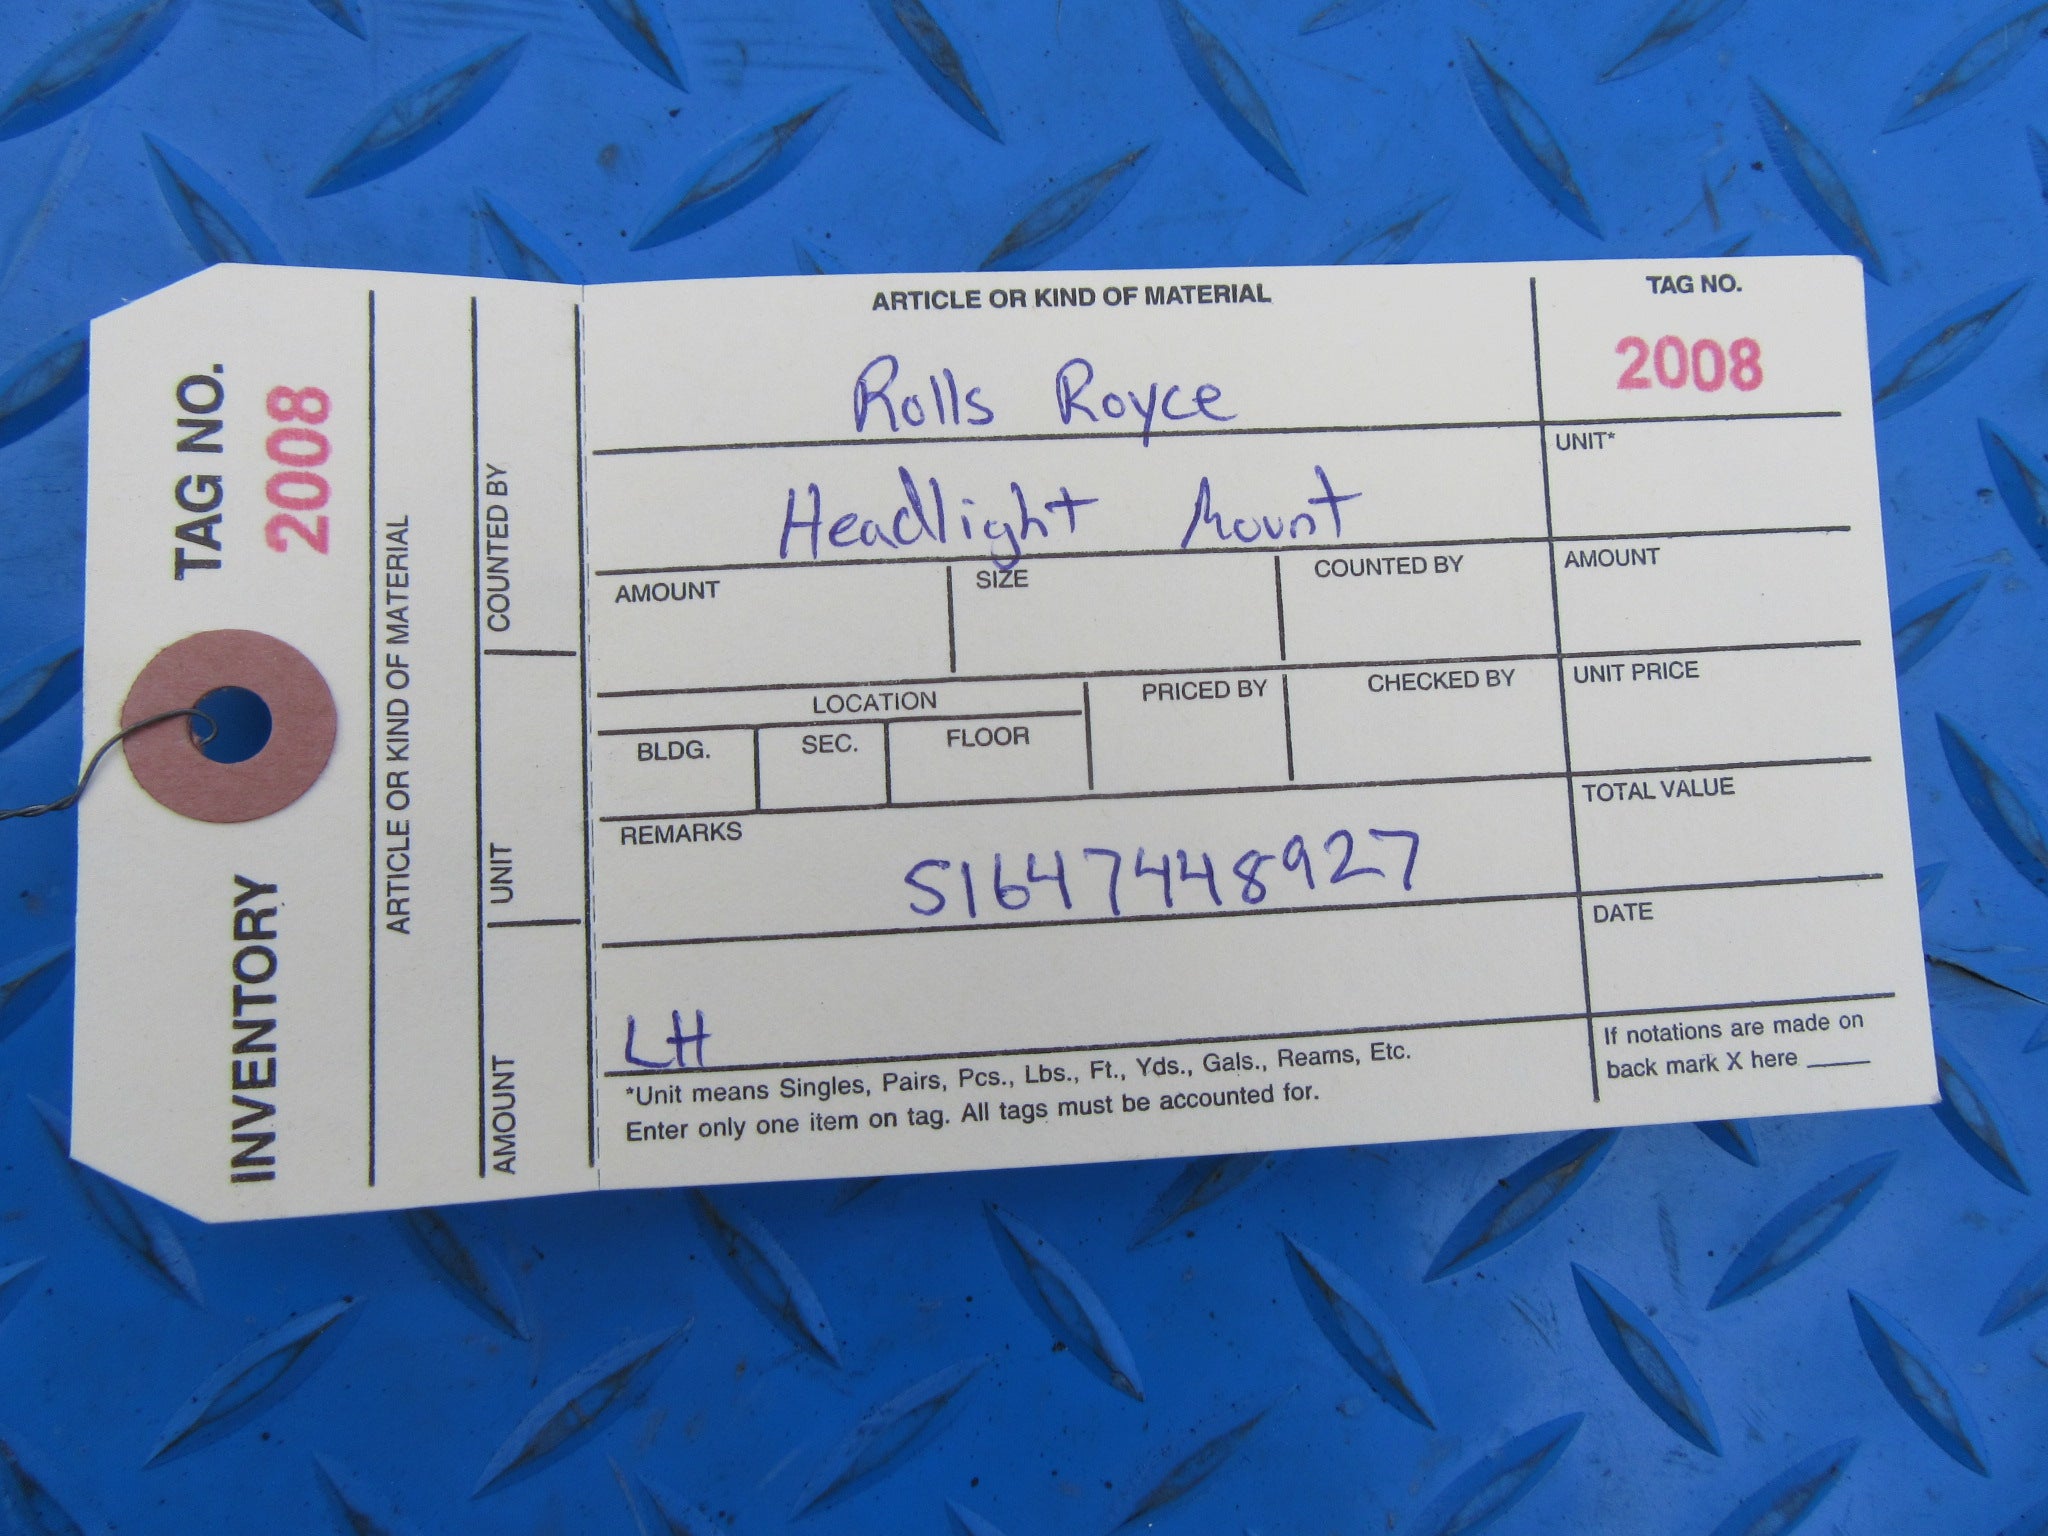 TAG NO.
2008
INVENTORY
ARTICLE OR KIND OF MATERIAL
COUNTED BY
UNIT
AMOUNT
ARTICLE OR KIND OF MATERIAL
Rolls Royce
Headlight Mount
TAG NO.
2008
UNIT*
AMOUNT
SIZE
COUNTED BY
AMOUNT
LOCATION
PRICED BY
CHECKED BY
UNIT PRICE
BLDG.
SEC.
FLOOR
REMARKS
51647448927
TOTAL VALUE
DATE
LH
*Unit means Singles, Pairs, Pcs., Lbs., Ft., Yds., Gals., Reams, Etc.
Enter only one item on tag. All tags must be accounted for.
If notations are made on
back mark X here ____